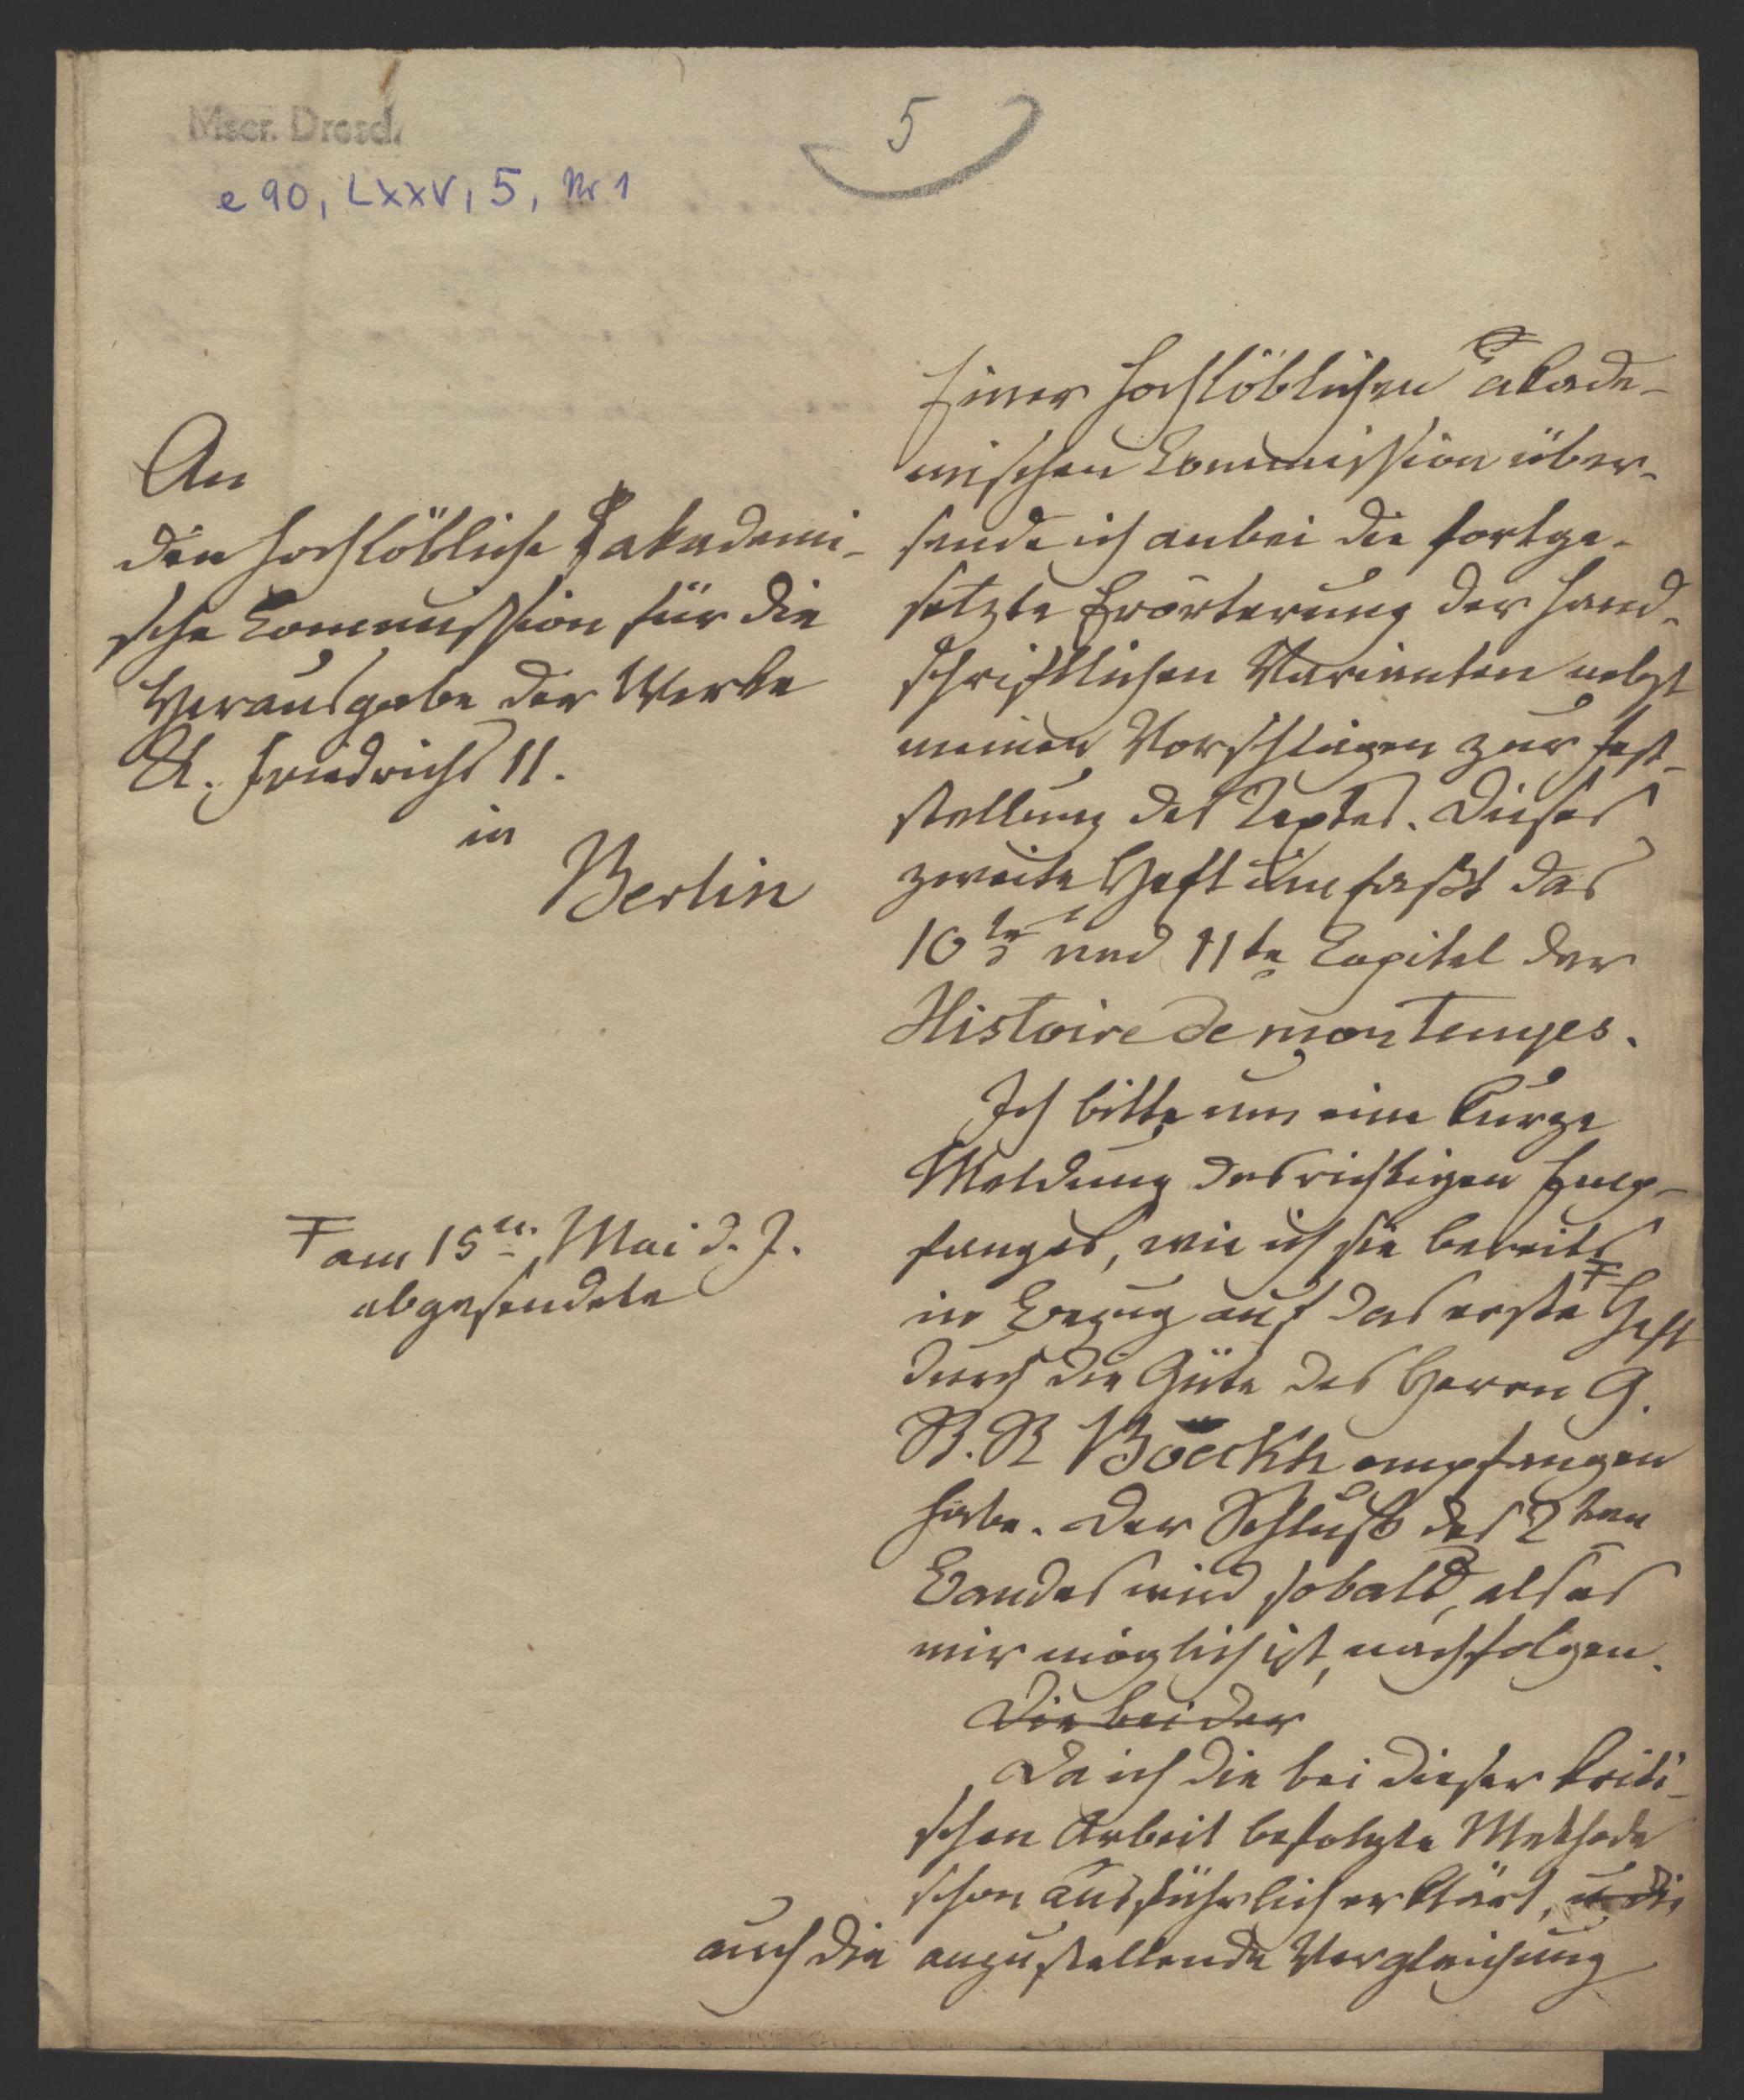 Mscr. Dresd.
e 90, LXXV, 5, Nr 1
5
An
die hochlöbliche akademi-
sche Commission für die
Herausgabe der Werke
K. Friedrichs II.
in
Berlin
Einer hochlöblichen akade-
mischen Commission über-
sende ich anbei die fortge-
setzte Erörterung der hand-
schriftlichen Varianten nebst
meinen Vorschlägen zur Fest-
stellung des Textes. Dieses
zweite Heft umfaßt das
10te und 11te Capitel der
Histoire de mon temps.
Ich bitte um eine kurze
Meldung des richtigen Emp-
fanges, wie ich sie bereits
in Bezug auf das erste Ŧ Heft
Ŧ am 15n. Mai d. J.
abgesendete
durch die Güte des Herrn G.
R. R Böckh empfangen
habe. Der Schluß des 2ten
Bandes wird sobald, als es
mir möglich ist, nachfolgen.
Die bei der
Da ich die bei dieser kriti-
schen Arbeit befolgte Methode
schon ausführlich erklärt, u. die
auch die anzustellende Vergleichung